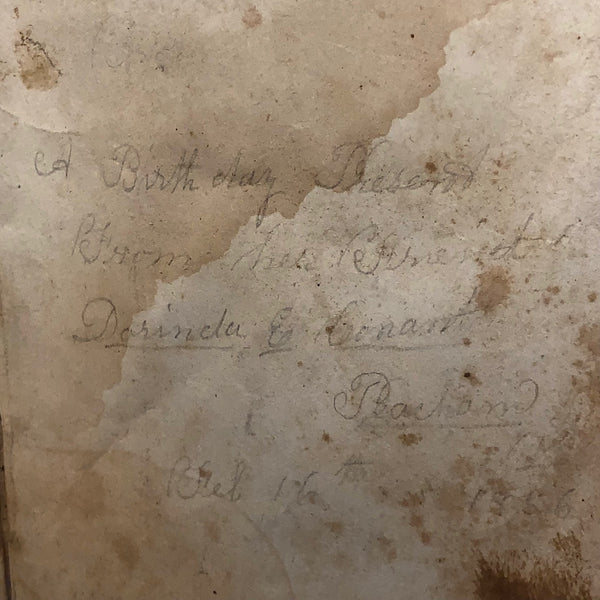 A Birth day Present
From her Friend
Dorinda E Conant
Peacham
Feb 16th 1856